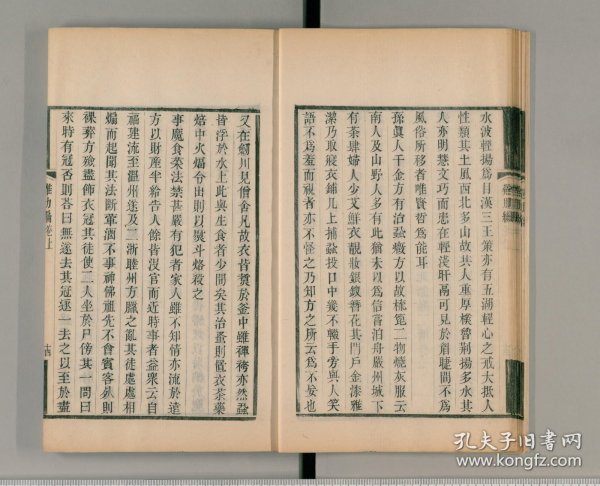 水波輕揚爲目漢三王策亦有五湖輕心之戒大抵人
性類其土風西北多山故其人重厚樸魯荊揚多水其
人亦明慧文巧而患在輕淺肝鬲可見於眉睫間不爲
風俗所移者唯賢哲爲能耳
孫眞人千金方有治蝨癥方以故梳篦二物燒灰服云
南人及山野人多有此猶未以爲信嘗泊舟嚴州城下
有茶肆婦人少艾鮮衣靚妝銀釵簪花其門戶金漆雅
潔乃取寢衣鋪几上捕蝨投口中幾不輟手旁與人笑
語不爲羞而視者亦不怪之乃知方之所云爲不妄也
又在劒川見僧舍凡故衣皆煑於釜中雖褌袴亦然蝨
皆浮於水上此與生食者少間矣其治蚤則置衣茶藥
焙中火煏令出則以熨斗烙殺之
事魔食菜法禁甚嚴有犯者家人雖不知情亦流於遠
方以財產半給告人餘皆沒官而近時事者益衆云自
福建流至溫州遂及二浙睦州方臘之亂其徒處處相
煽而起聞其法斷葷酒不事神佛祖先不會賓客死則
裸葬方殮盡飾衣冠其徒使二人坐於尸傍其一問曰
來時有冠否則荅曰無遂去其冠逐一去之以至於盡
雞肋編卷上
十四
孔夫子旧书网
www.kongfz.com